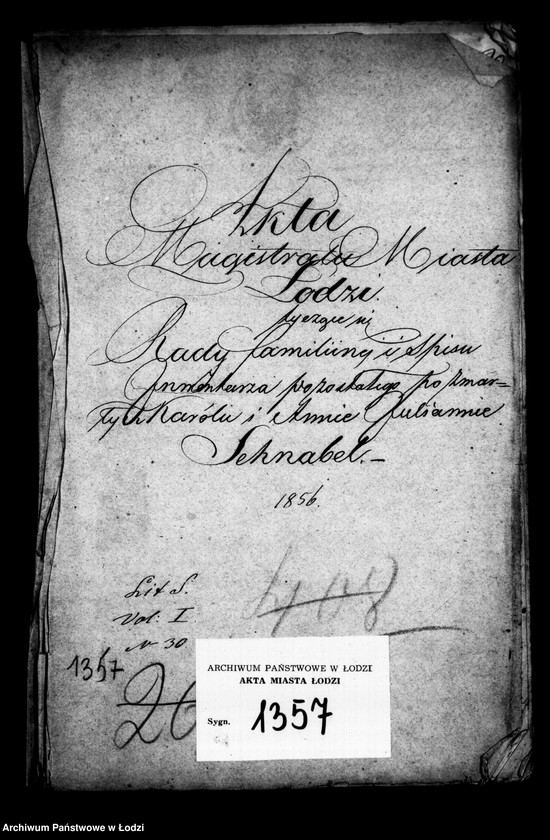 Akta
Magistratu Miasta
Łodzi.
tyczące się
Rady familijnej i Spisu
Inwentarza pozostałego po zmar=
łych Karolu i Annie Juliannie
Schnabel.–
1856.
Lit S.
Vol: I
N 30
1357
ARCHIWUM PAŃSTWOWE W ŁODZI
AKTA MIASTA ŁODZI
Sygn. 1357
Archiwum Państwowe w Łodzi